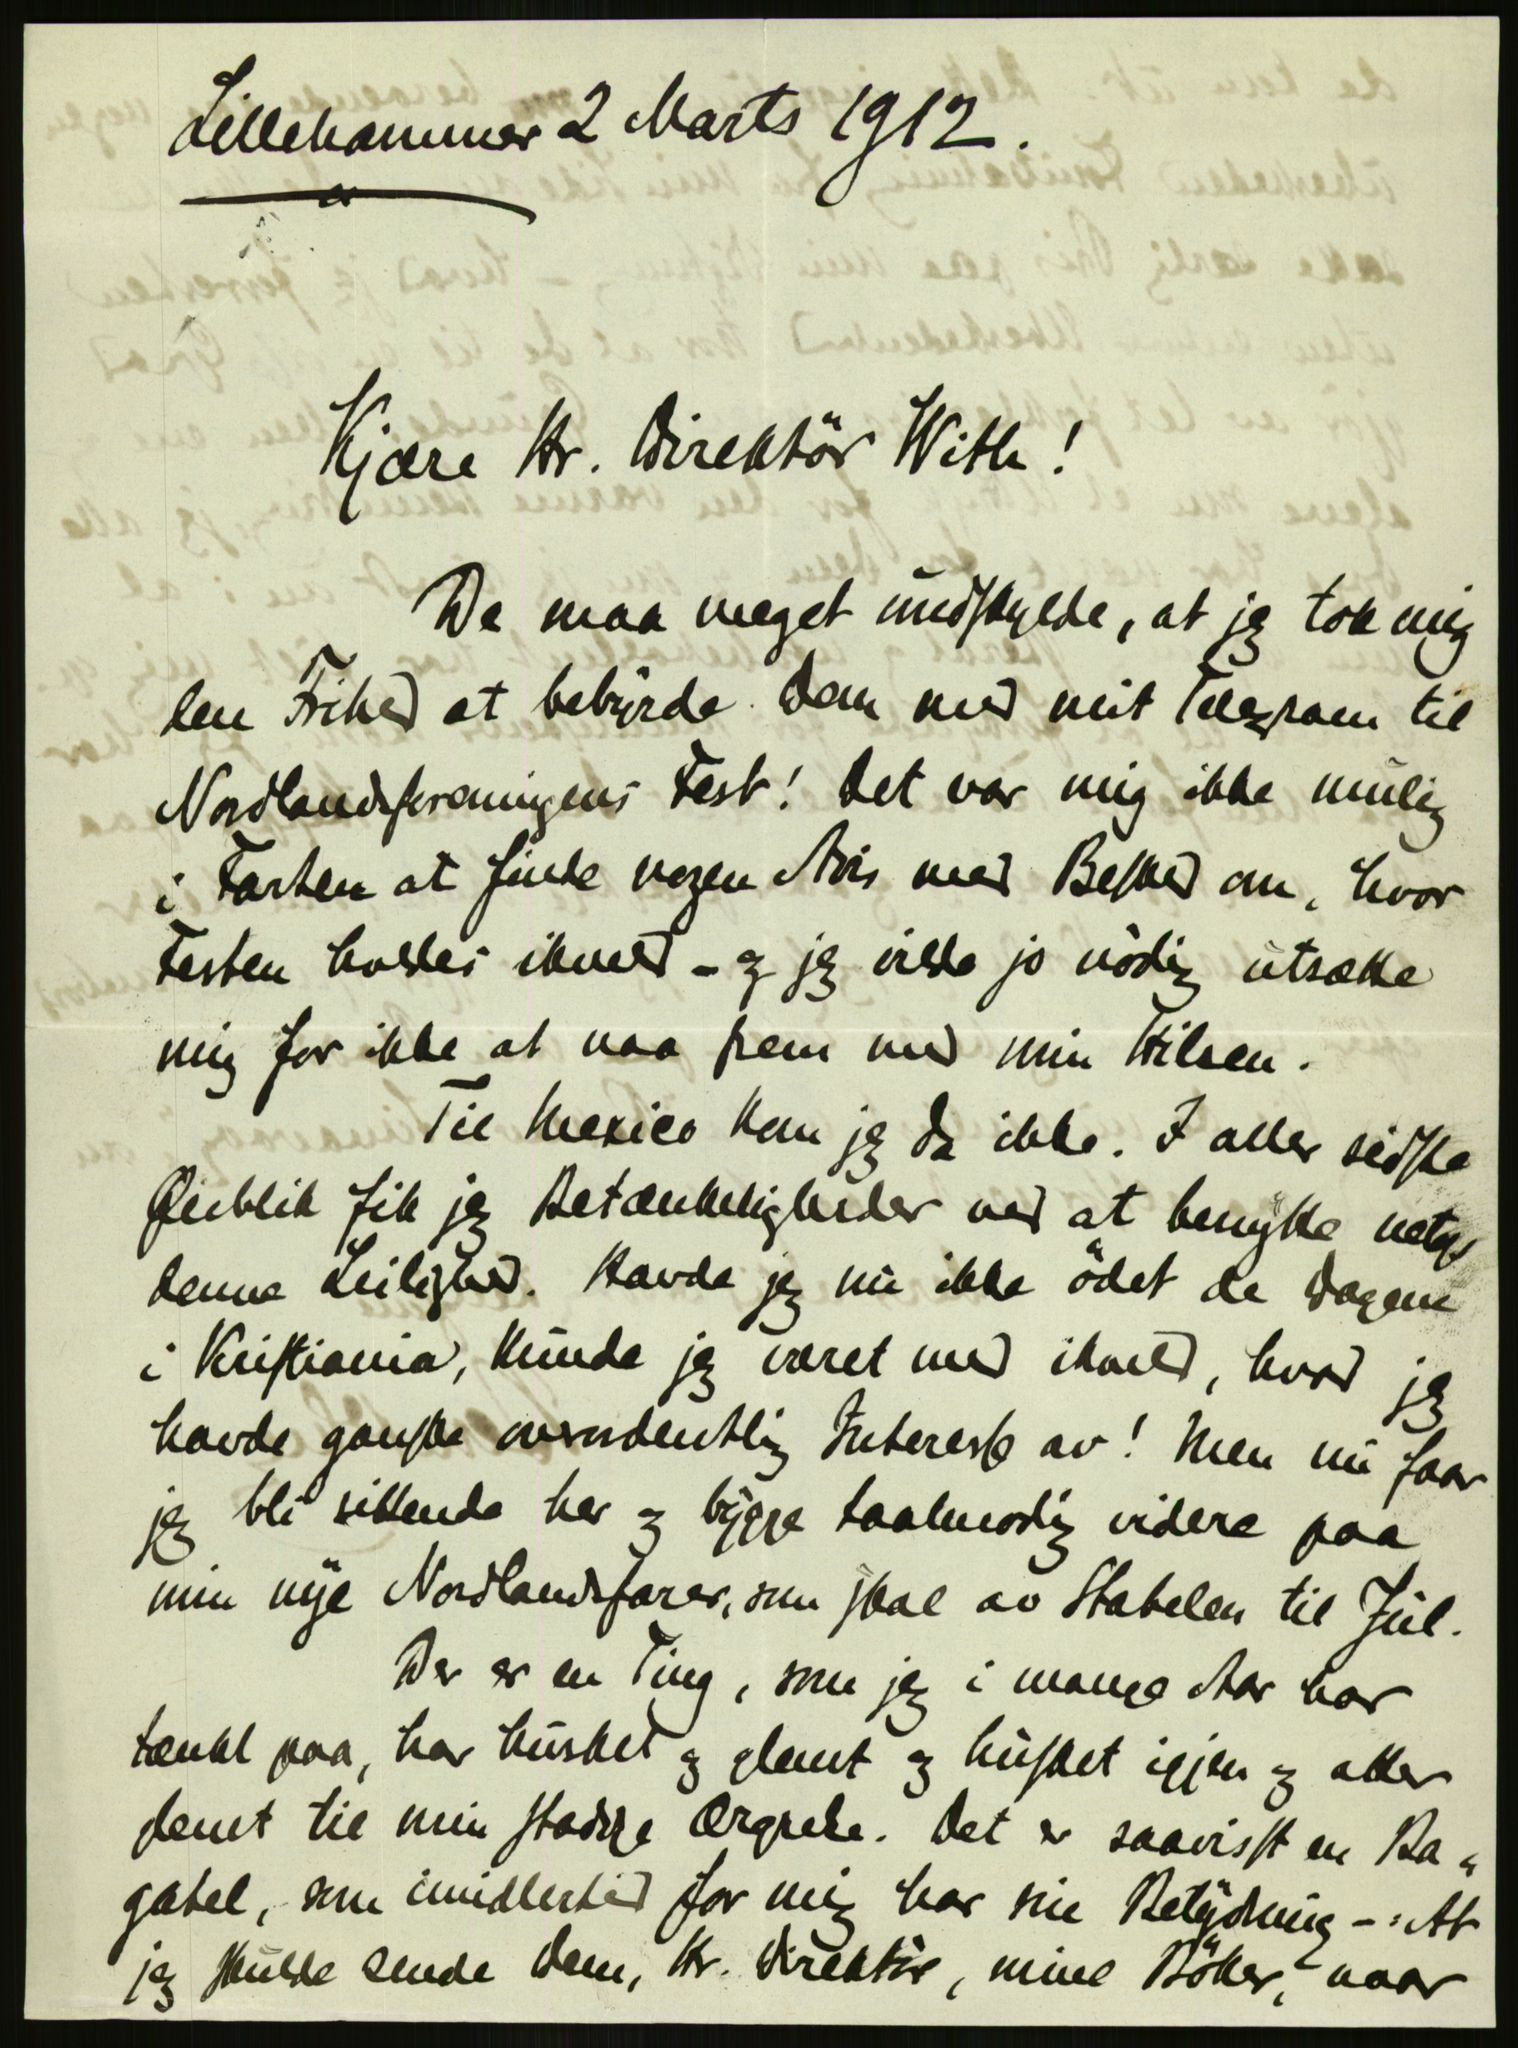 Lillehammer 2 Marts 1912.
Kjære Hr. Direktör With!
De maa meget undskylde, at jeg tok mig
den Frihed at bebyrde Dem med mit Telegram til
Nordlandsforeningens Fest! Det var mig ikke mulig
i Farten at finde nogen Avis med Besked om, hvor
Festen holdes ikveld - og jeg vilde jo nödig utsætte
mig for ikke at naa frem med min Hilsen.
Til Mexico kom jeg da ikke. I aller sidste
Øieblik fik jeg Betænkeligheder ved at benytte netop
denne Leilighed. Havde jeg nu ikke ödet de Dagene
i Kristiania, kunde jeg været med ikveld, hvad jeg
havde ganske overordentlig Interesse av! Men nu faar
jeg bli sittende her og bygge taalmodig videre paa
min nye Nordlandsfarer, som skal av Stabelen til Jul.
Der er en Ting, som jeg i mange Aar har
tænkt paa, har husket og glemt og husket igjen og atter
glemt til min stadige Ærgrelse. Det er saavisst en Ba-
gatel, som imidlertid for mig har sin Betydning -: At
jeg skulde sende Dem, Hr. Direktör, mine Böker, naar